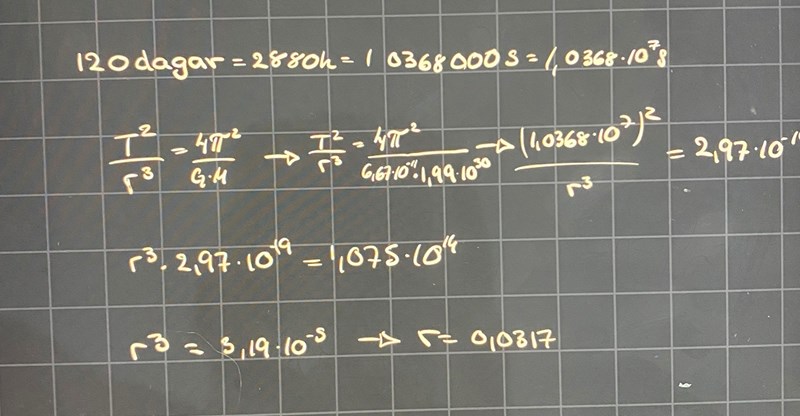 120 dagar = 2880h = 1 0368000 s = 1,0368·10⁷s
T²/r³ = 4π²/G·M → T²/r³ = 4π²/6,67·10⁻¹¹·1,99·10³⁰ → (1,0368·10⁷)²/r³ = 2,97·10⁻¹
r³·2,97·10¹⁹ = 1,075·10¹⁴
r³ = 3,19·10⁻⁵ → r = 0,0317